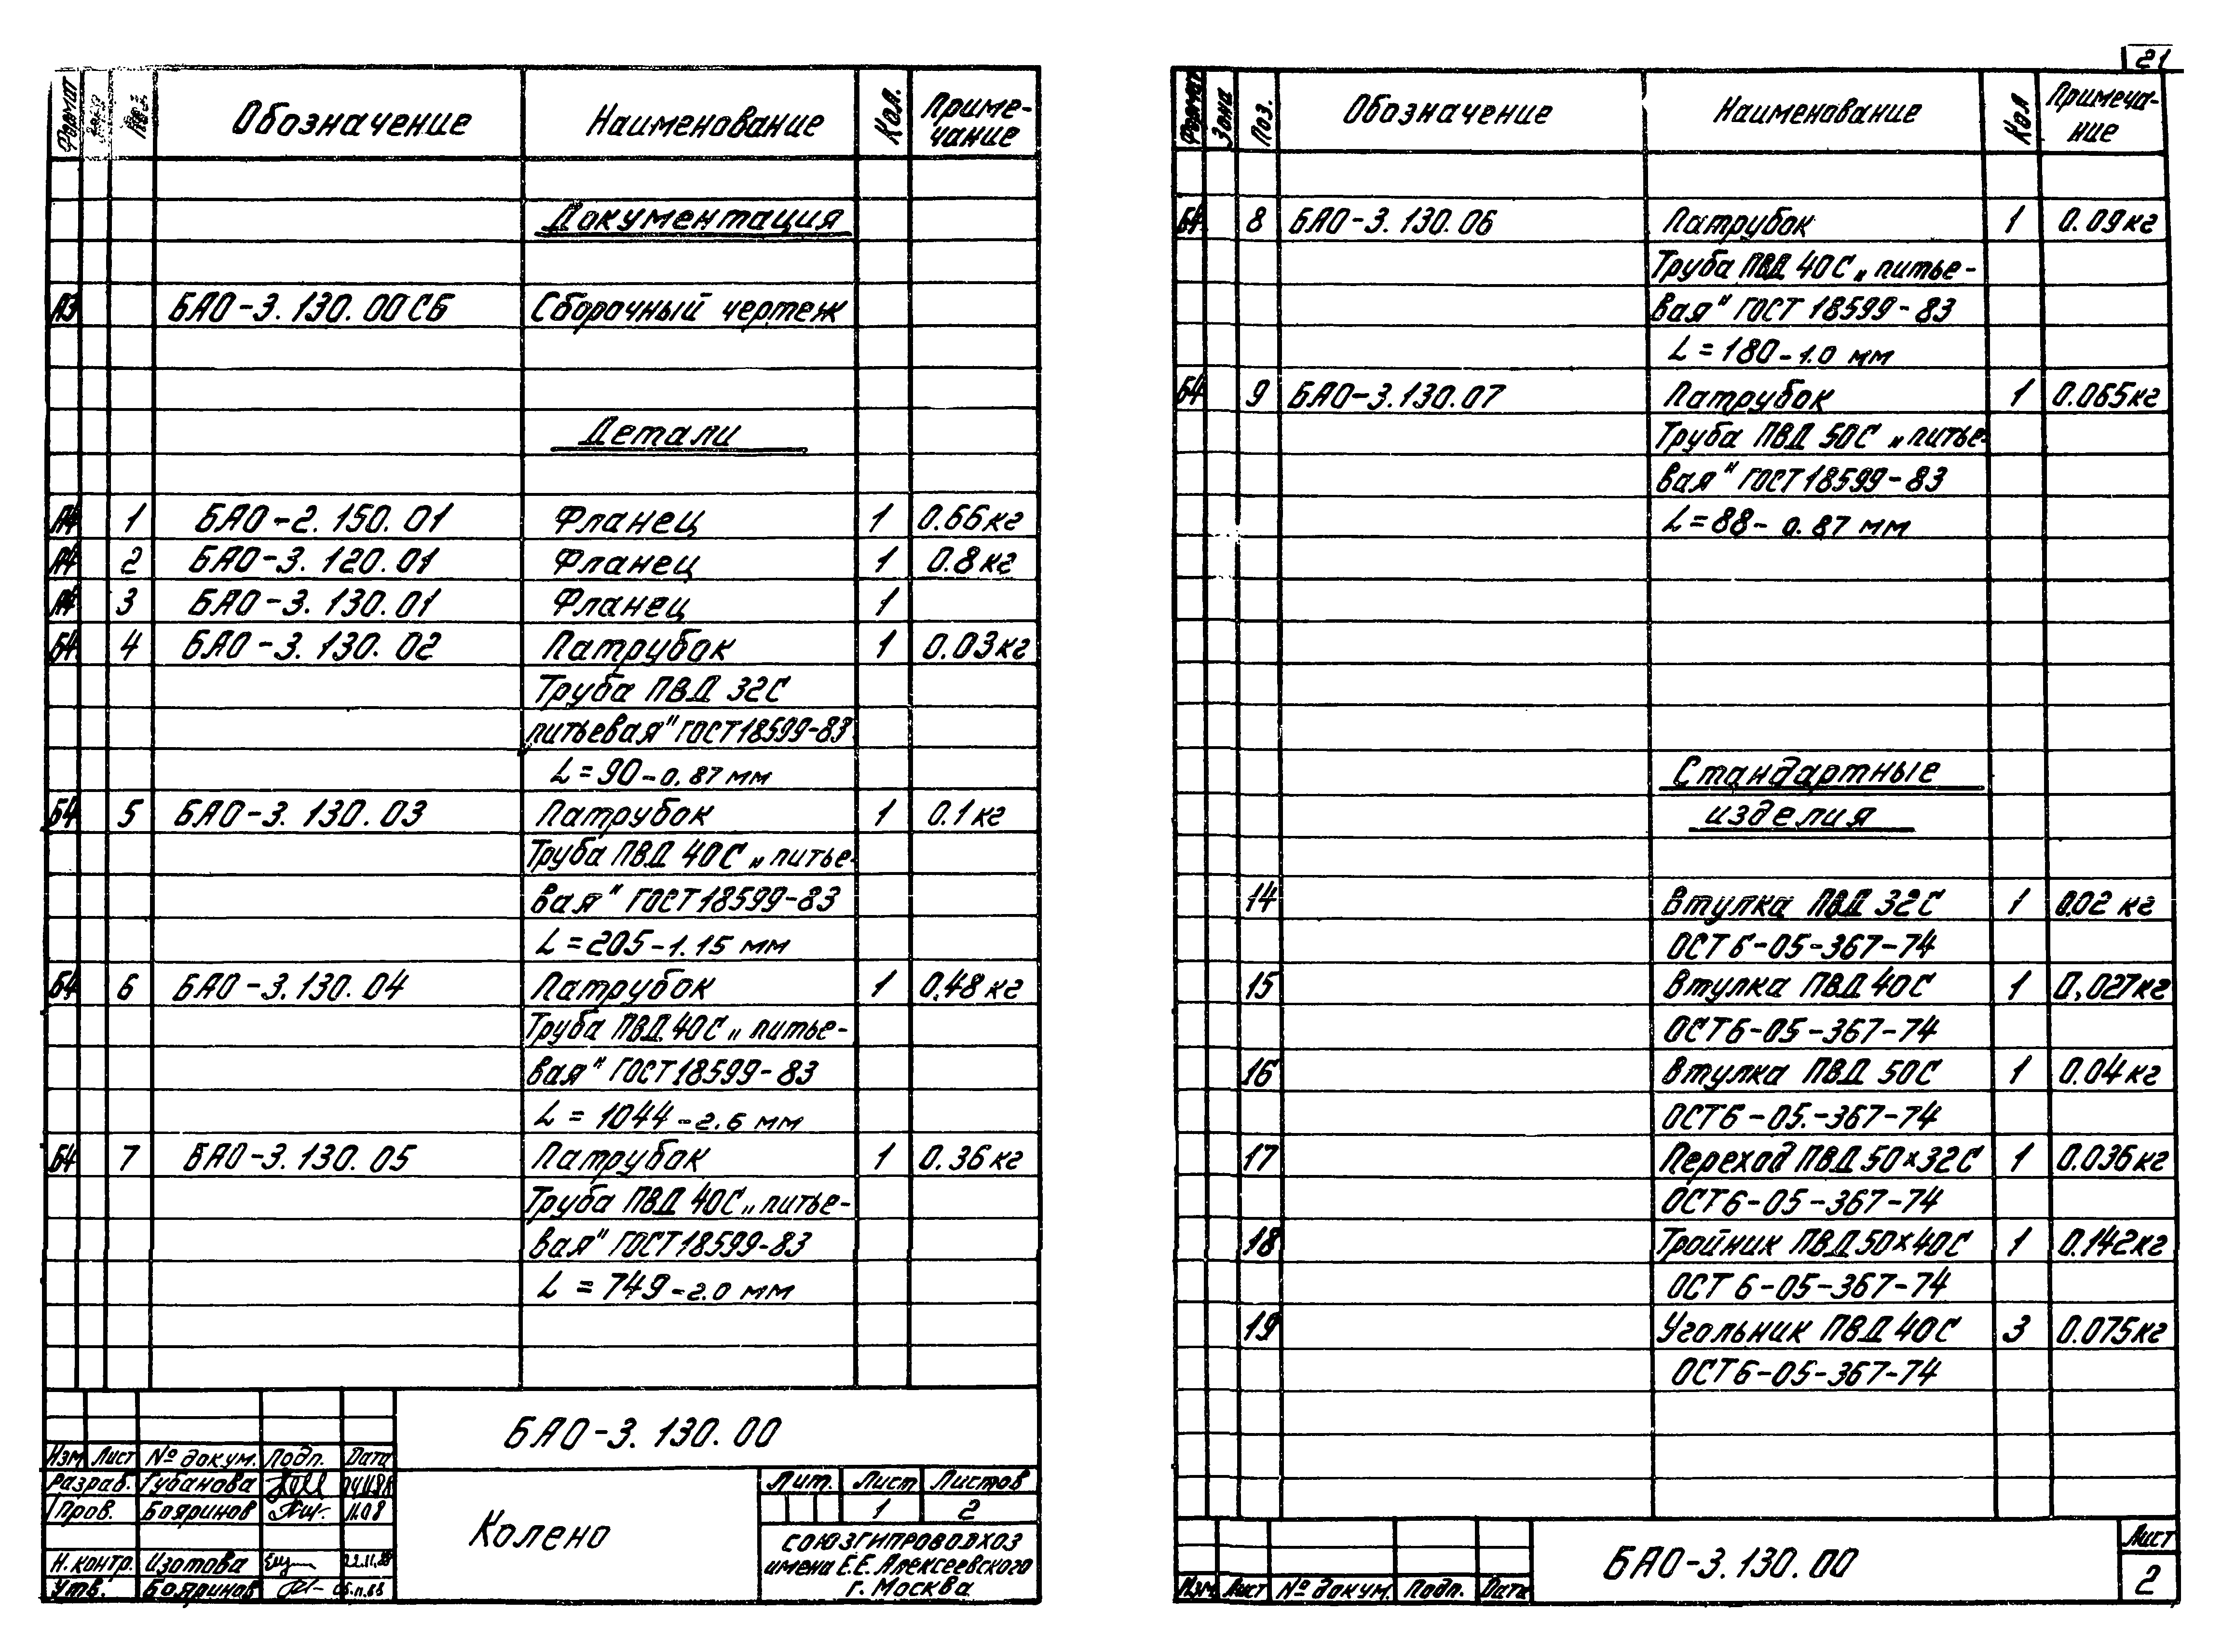 Формат Поз. Обозначение Наименование Кол. Приме-
чание
Документация
А3 БАО-3.130.00СБ Сборочный чертеж
Детали
А4 1 БАО-2.150.01 Фланец 1 0.66кг
А4 2 БАО-3.120.01 Фланец 1 0.8кг
А4 3 БАО-3.130.01 Фланец 1
БЧ 4 БАО-3.130.02 Патрубок 1 0.03кг
Труба ПВД 32С
питьевая" ГОСТ18599-83
L=90-0.87 мм
БЧ 5 БАО-3.130.03 Патрубок 1 0.1кг
Труба ПВД 40С „питье-
вая" ГОСТ18599-83
L=205-1.15 мм
БЧ 6 БАО-3.130.04 Патрубок 1 0.48кг
Труба ПВД 40С „питье-
вая" ГОСТ18599-83
L = 1044-2.6 мм
БЧ 7 БАО-3.130.05 Патрубок 1 0.36кг
Труба ПВД 40С „питье-
вая" ГОСТ18599-83
L = 749-2.0 мм
БАО-3.130.00
Изм Лист № докум. Подп. Дата
Разраб. Губанова
Пров. Бояринов 11.08
Н.контр. Изотова 22.11.88
Утв. Бояринов
Колено
Лит. Лист Листов
1 2
СОЮЗГИПРОВОДХОЗ
имени Е.Е. Алексеевского
г. Москва
21
Формат Зона Поз. Обозначение Наименование Кол Примеча-
ние
БЧ 8 БАО-3.130.06 Патрубок 1 0.09кг
Труба ПВД 40С „питье-
вая" ГОСТ 18599-83
L = 180-1.0 мм
БЧ 9 БАО-3.130.07 Патрубок 1 0.065кг
Труба ПВД 50С „питье-
вая" ГОСТ18599-83
L=88-0.87 мм
Стандартные
изделия
14 Втулка ПВД 32С 1 0.02 кг
ОСТ6-05-367-74
15 Втулка ПВД 40С 1 0,027кг
ОСТ6-05-367-74
16 Втулка ПВД 50С 1 0.04кг
ОСТ6-05-367-74
17 Переход ПВД 50×32С 1 0.036кг
ОСТ6-05-367-74
18 Тройник ПВД 50×40С 1 0.142кг
ОСТ 6-05-367-74
19 Угольник ПВД 40С 3 0.075кг
ОСТ6-05-367-74
Изм Лист № докум. Подп. Дата
БАО-3.130.00
Лист
2